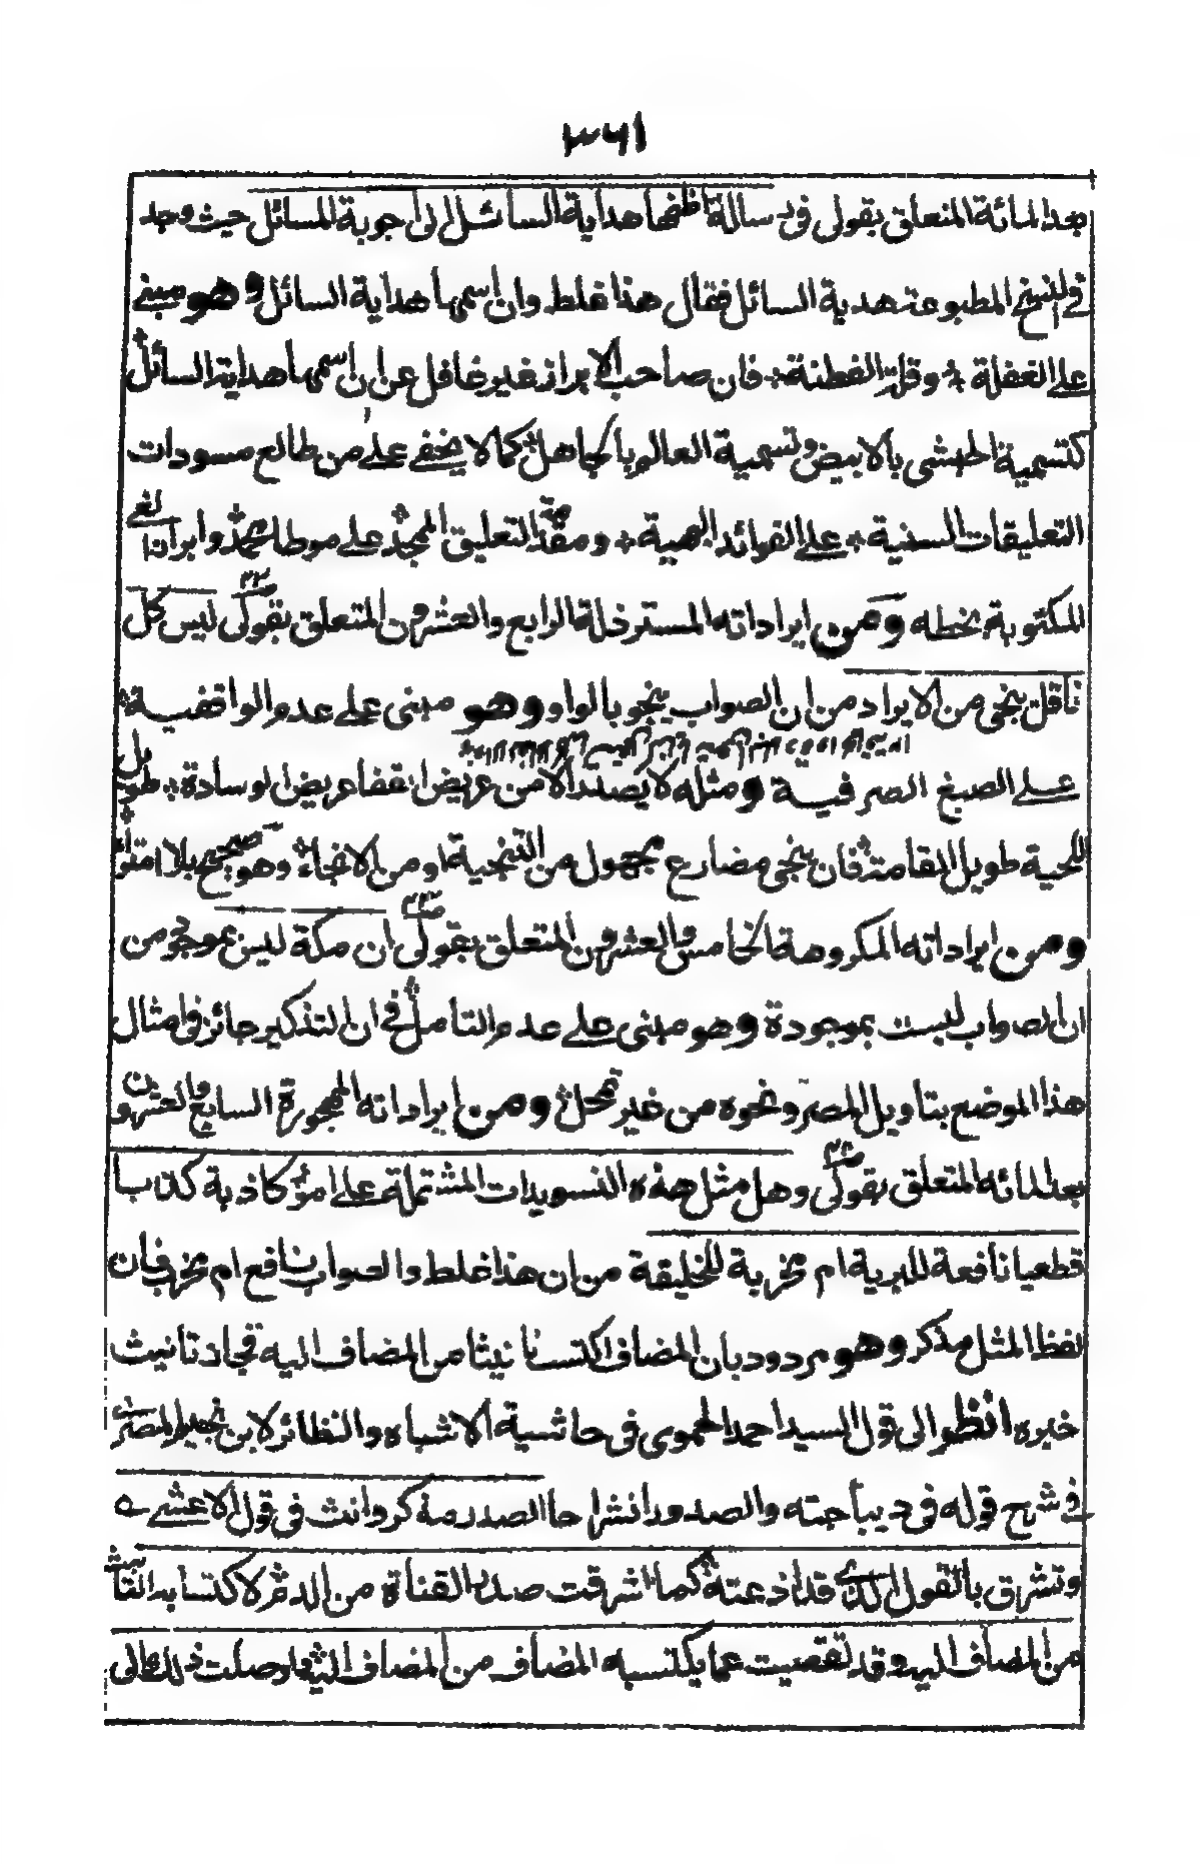 ٣٦١
بعد المائة المتعلق بقولى فى رسالة اظنها هداية السائل الى اجوبة المسائل حيث وجد
فى النسخ المطبوعة هدية السائل فقال هذا غلط وان اسمها هداية السائل وهو مبنى
على الغفلة وقلة الفطنة فان صاحب الابراز غير غافل عن ان اسمها هداية السائل
كتسمية الحبشى بالابيض وتسمية العالم بالجاهل كما لا يخفى على من طالع مسودات
التعليقات السنية على الفوائد البهية ومقدمة التعليق الممجد على موطا محمد وابراز الغى
المكتوبة بخطه ومن ايراداته المسترذلة الرابع والعشرون المتعلق بقولى ليس كل
ناقل ينجى من الايراد من ان الصواب ينجو بالواو وهو مبنى على عدم الواقفية
على الصيغ الصرفية ومثله لا يصدر الا من عريض القفا عريض الوسادة طويل
اللحية طويل القامة فان ينجى مضارع مجهول من التنجية او من الانجاء وهو صحيح بلا امتراء
ومن ايراداته المكروهة الخامس والعشرون المتعلق بقولى ان مكة ليس بموجود من
ان الصواب ليست بموجودة وهو مبنى على عدم التامل فى ان التذكير جائز فى امثال
هذا الموضع بتاويل المصر ونحوه من غير تمحل ومن ايراداته المهجورة السابع والعشرون
بعد المائة المتعلق بقولى وهل مثل هذه التسويدات المشتملة على امور كاذبة كذبا
قطعيا نافعة للبرية ام مخربة للخليقة من ان هذا غلط والصواب نافع ام مخرب فان
لفظ المثل مذكر وهو مردود بان المضاف اكتسب تانيثا من المضاف اليه فجاز تانيث
خبره انظر الى قول السيد احمد الحموى فى حاشية الاشباه والنظائر لابن نجيم المصرى
فى شرح قوله فى ديباجته والصدور انشراحا الصدر مذكر وانث فى قول الاعشى ه
وتشرق بالقول الذى قد اذعته كما شرقت صدر القناة من الدم لاكتسابه التانيث
من المضاف اليه وقد تقصيت عما يكتسبه المضاف من المضاف اليه فاوصلت ذلك الى